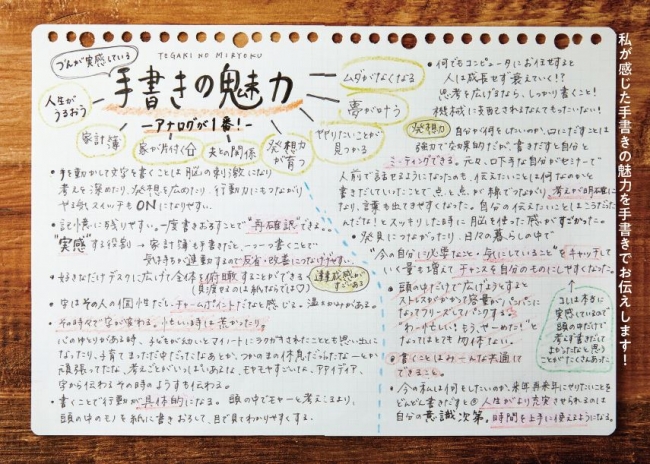 私が感じた手書きの魅力を手書きでお伝えします！
づんが実感している
TEGAKI NO MIRYOKU
手書きの魅力
アナログが1番！
人生がうるおう
家計簿
家が片付く
夫との関係
発想力が育つ
やりたいことが見つかる
夢が叶う
ムダがなくなる
・手を動かして文字を書くことは脳の刺激になり
考えを深めたり、発想を広めたり、行動力にもつながり
やる気スイッチもONになりやすい。
・記憶に残りやすい。一度書きおろすことで"再確認"できる。
"実感"する役割→家計簿も手書きだと、一つ一つ書くことで
気持ちが連動するので反省・改善につなげやすい。
・好きなだけデスクに広げて全体を俯瞰することができる
達成感がすごいある
・字はその人の個性だし、チャームポイントだなと感じる。温かみがある。
・その時々で字が変わる。忙しい時は荒かったり。
心のゆとりがある時、子どもが幼いとマイノートにラクガキされたことも思い出に
なったり、子育てまっただ中だったなあとか、つかのまの休息だったんだなーとか
頑張ってたな、考えごとがいっぱいあるな、モヤモヤすごいな、アイディア、
字から伝わるその時のようすも伝わる。
・書くことで行動が具体的になる。頭の中でモヤーと考えこみより、
頭の中のモノを紙に書きおろして、目で見てわかりやすくする。
・何でもコンピュータにお任せすると
人は成長せず衰えていく！？
思考を広げるなら、しっかり書くこと！
機械に支配されるなんてもったいない！
発想力
自分が何をしたいのか、口にだすことは
強力で効果的だが、書きだすと自分と
ミーティングできる。元々、口下手な自分がセミナーで
人前で話せるようになったのも、伝えたいことは何なのかと
書きだしていったことで、点と点が線でつながり、考えが明確に
なり、言葉も出てきやすくなった。自分の伝えたいことはこうだった
んだな！とスッキリした時に脳を使った感がすごかった。
・発見につながったり、日々の暮らしの中で
"今の自分に必要なこと・気にしていること"をキャッチして
いく量も増えてチャンスを自分のものにしやすくなった。
・頭の中だけで広げようとすると
ストレスがかかって容量がパンパンに
なってフリーズしてパンクする。
"わー忙しい！もう、やーめた！"と
なってはとても勿体ない。
コレは本当に
実感しているので
頭の中だけで
考えず書きだして
よかったなと思う
ことがたくさんあった。
・書くことはみーんな共通して
できること。
・今の私は何をしたいのか、来年再来年にやりたいことを
どんどん書きだすと人生がより充実させられるのは
自分の意識次第。時間を上手に使えるようになる。